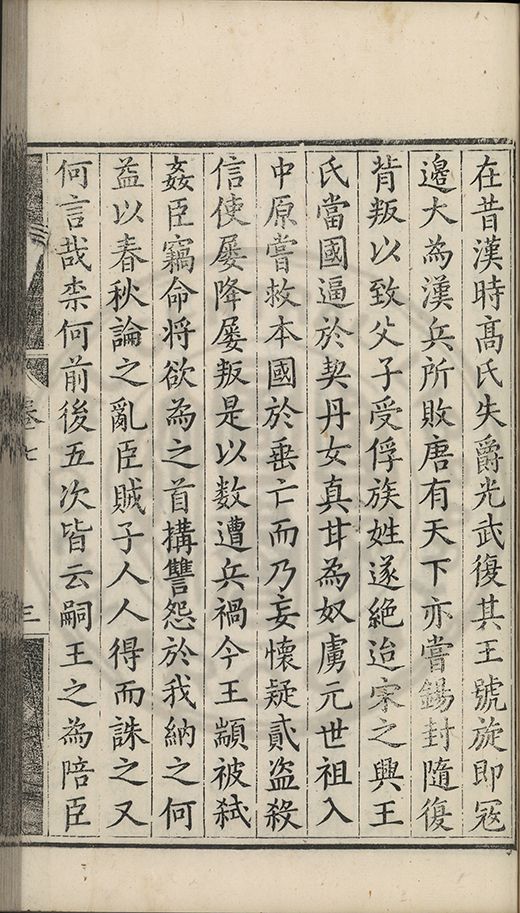 在昔漢時高氏失爵光武復其王號旋即宼
邊大為漢兵所敗唐有天下亦嘗錫封隨復
背叛以致父子受俘族姓遂絶迨宋之興王
氏當國逼於契丹女真甘為奴虜元世祖入
中原嘗救本國於垂亡而乃妄懷疑貳盜殺
信使屡降屡叛是以数遭兵禍今王顓被弑
姦臣竊命将欲為之首搆讐怨於我納之何
益以春秋論之亂臣賊子人人得而誅之又
何言哉柰何前後五次皆云嗣王之為陪臣
卷七
三